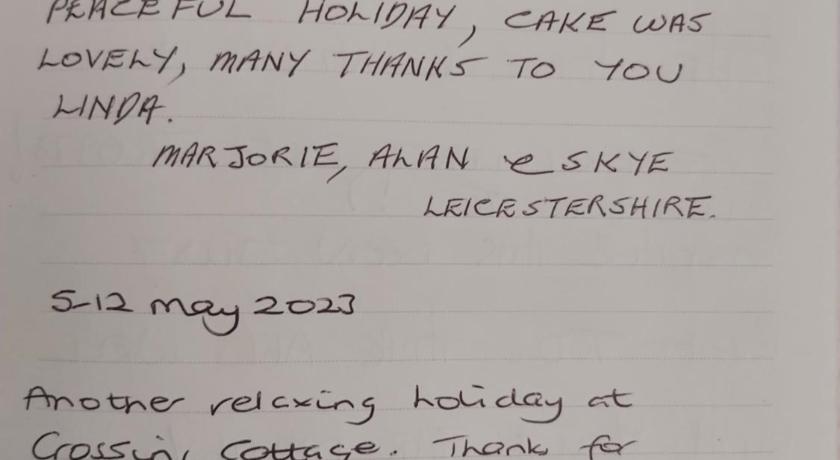 PEACEFUL HOLIDAY, CAKE WAS
LOVELY, MANY THANKS TO YOU
LINDA.
MARJORIE, ALAN & SKYE
LEICESTERSHIRE.
5-12 May 2023
Another relaxing holiday at
Cottage. Thank for